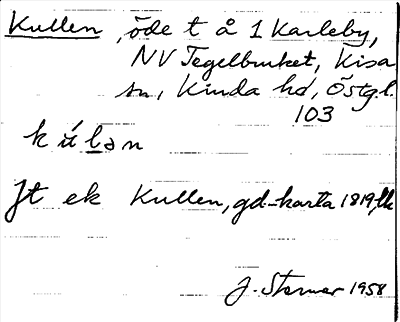 Kullen, öde t å 1 Karleby,
NV Tegelbruket, Kisa
sn, Kinda hd, Östgl.
103
kúlan
Jt ek Kullen, gd-karta 1819, lk
J. Stermer 1958